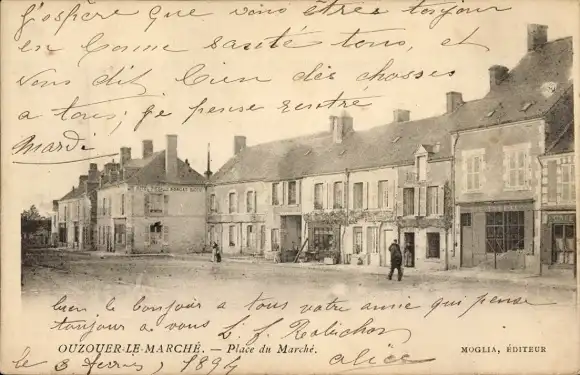 J'espère que vous êtes toujour
en bonne santé tous, et
vous dit bien des choses
a tous; je pense rentré
mardi
bien le bonjour a tous votre amie qui pense
toujour a vous
OUZOUER-LE-MARCHÉ. — Place du Marché.
MOGLIA, ÉDITEUR
le 3
alice